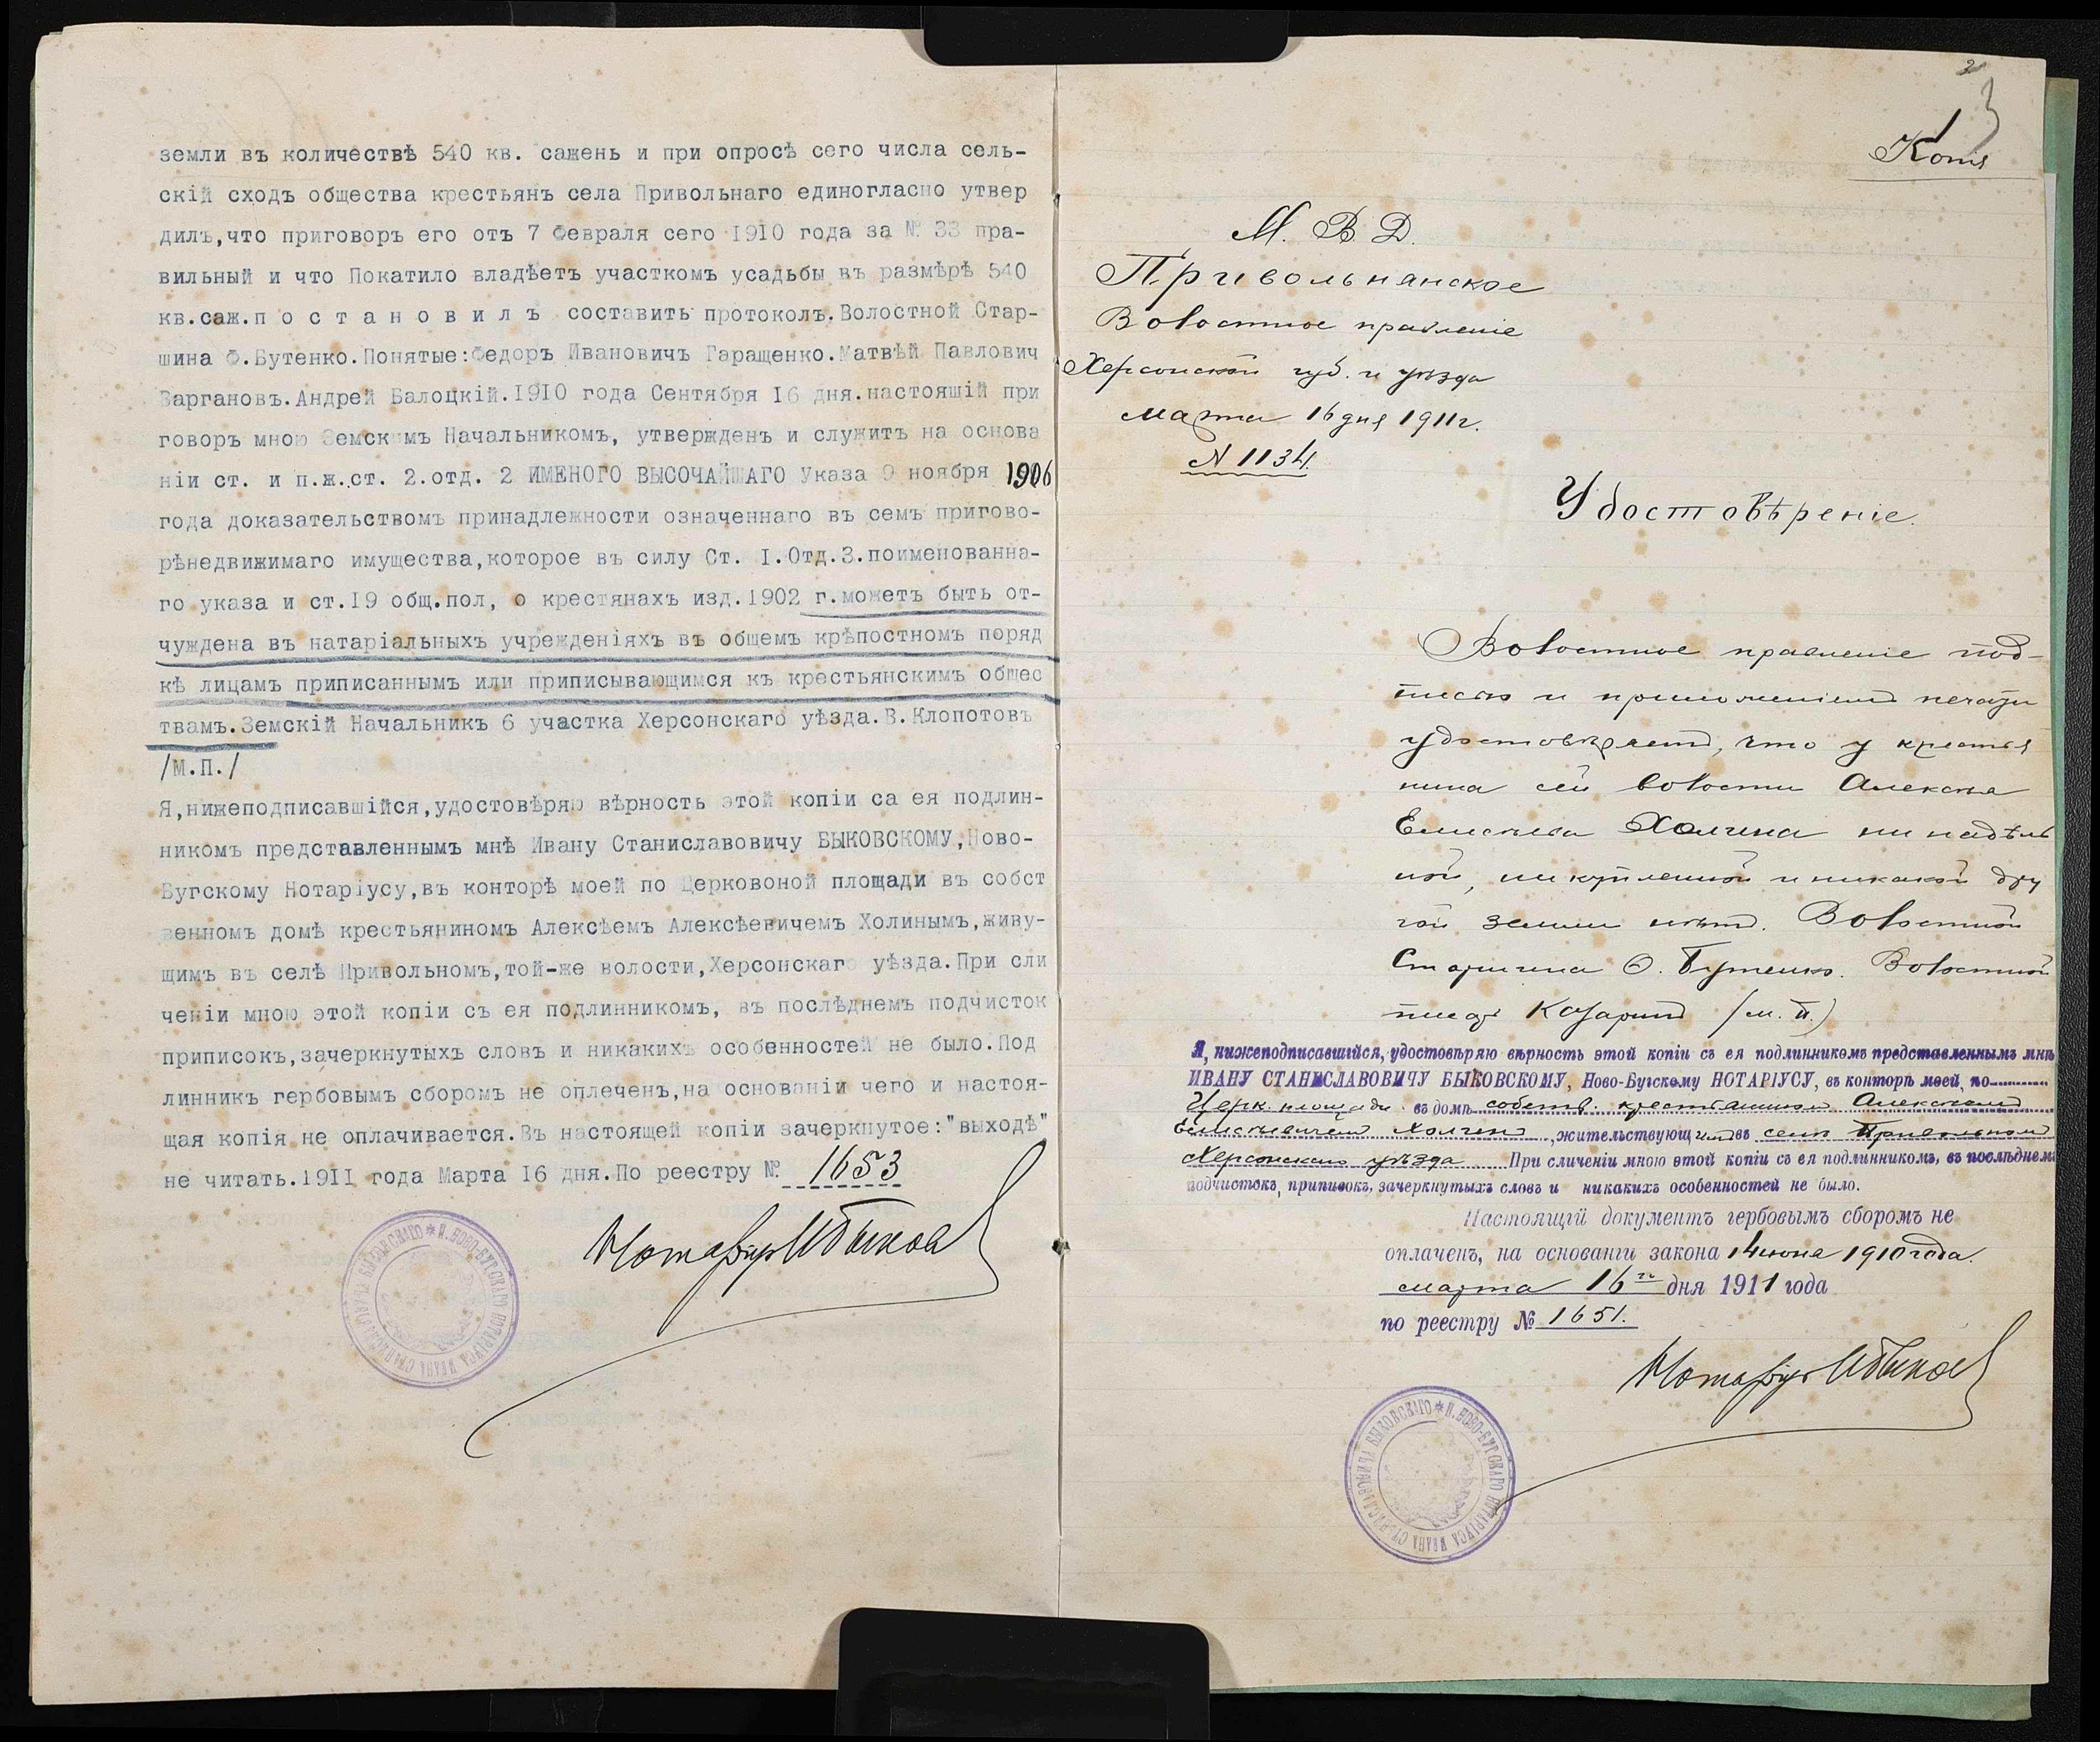 земли въ количествѣ 540 кв. сажень и при опросѣ сего числа сель-
скій сходъ общества крестьянъ села Привольнаго единогласно утвер
дилъ,что приговоръ его отъ 7 Февраля сего 1910 года за № 33 пра-
вильный и что Покатило владѣетъ участкомъ усадьбы въ размѣрѣ 540
кв.саж.п о с т а н о в и л ъ составить протоколъ.Волостной Стар-
шина Ф.Бутенко.Понятые:Федоръ Ивановичъ Гаращенко.Матвѣй Павлович
Варгановъ.Андрей Балоцкій.1910 года Сентября 16 дня.настоящій при
говоръ мною Земскимъ Начальникомъ, утвержденъ и служитъ на основа
ніи ст. и п.ж.ст. 2.отд. 2 ИМЕНОГО ВЫСОЧАЙШАГО Указа 9 ноября 1906
года доказательствомъ принадлежности означеннаго въ семъ пригово-
рѣнедвижимаго имущества,которое въ силу Ст. I.Отд.3.поименованна-
го указа и ст.19 общ.пол, о крестянахъ изд.1902 г.можетъ быть от-
чуждена въ натаріальныхъ учрежденіяхъ въ общемъ крѣпостномъ поряд
кѣ лицамъ приписаннымъ или приписывающимся къ крестьянскимъ общес
твамъ.Земскій Начальникъ 6 участка Херсонскаго уѣзда.В.Клопотовъ
/М.П./
Я,нижеподписавшійся,удостовѣряю вѣрность этой копіи са ея подлин-
никомъ представленнымъ мнѣ Ивану Станиславовичу БЫКОВСКОМУ,Ново-
Бугскому Нотаріусу,въ конторѣ моей по Церковоной площади въ собст
венномъ домѣ крестьяниномъ Алексѣемъ Алексѣевичемъ Холинымъ,живу-
щимъ въ селѣ Привольномъ,той-же волости,Херсонскаго уѣзда.При сли
ченіи мною этой копіи съ ея подлинникомъ, въ послѣднемъ подчисток
приписокъ,зачеркнутыхъ словъ и никакихъ особенностей не было.Под
линникъ гербовымъ сборомъ не оплеченъ,на основаніи чего и настоя-
щая копія не оплачивается.Въ настоящей копіи зачеркнутое:"выходѣ"
не читать.1911 года Марта 16 дня.По реестру № 1653
Нотаріусъ ИБыков
* И. НОВО-БУГСКАГО НОТАРІУСА ИВАНА СТАНИСЛАВОВИЧА БЫКОВСКАГО
2
3
Копія
М. В. Д.
Привольнянское
Волостное правленіе
Херсонской губ. и уѣзда
марта 16 дня 1911 г.
№ 1134.
Удостовѣреніе.
Волостное правленіе под-
писью и приложеніемъ печати
удостовѣряетъ, что у крестья
нина сей волости Алексѣя
Елисѣева Холина ни надѣль
ной, ни купленной и никакой дру
гой земли нѣтъ. Волостной
Старшина Ѳ. Бутенко. Волостной
писарь Казаринъ /м. п.)
Я, нижеподписавшійся, удостовѣряю вѣрность этой копіи съ ея подлинникомъ представленнымъ мнѣ
ИВАНУ СТАНИСЛАВОВИЧУ БЫКОВСКОМУ, Ново-Бугскому НОТАРІУСУ, въ конторѣ моей, по
Церк. площади въ домѣ собств. крестьяниномъ Алексѣемъ
Елисѣевичемъ Холинымъ, жительствующимъ въ селѣ Привольномъ
Херсонскаго уѣзда При сличеніи мною этой копіи съ ея подлинникомъ, въ послѣднемъ
подчистокъ, приписокъ, зачеркнутыхъ словъ и никакихъ особенностей не было.
Настоящій документъ гербовымъ сборомъ не
оплаченъ, на основаніи закона 14 июня 1910 года.
марта 16 го дня 1911 года
по реестру № 1651.
Нотаріусъ ИБыков
* И. НОВО-БУГСКАГО НОТАРІУСА ИВАНА СТАНИСЛАВОВИЧА БЫКОВСКАГО